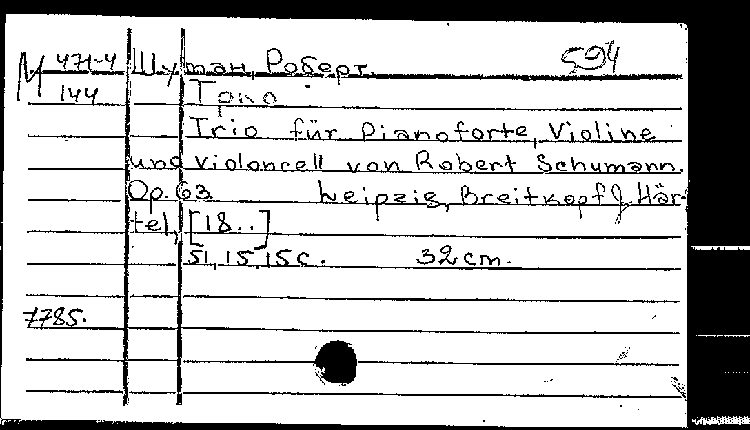 М 471-4 Шуман, Роберт. 594
144 Трио
Trio für Pianoforte, Violine
und Violoncell von Robert Schumann.
Op. 63 Leipzig, Breitkopf & Här-
tel, [18..]
51, 15, 15 с. 32 cm.
7785.